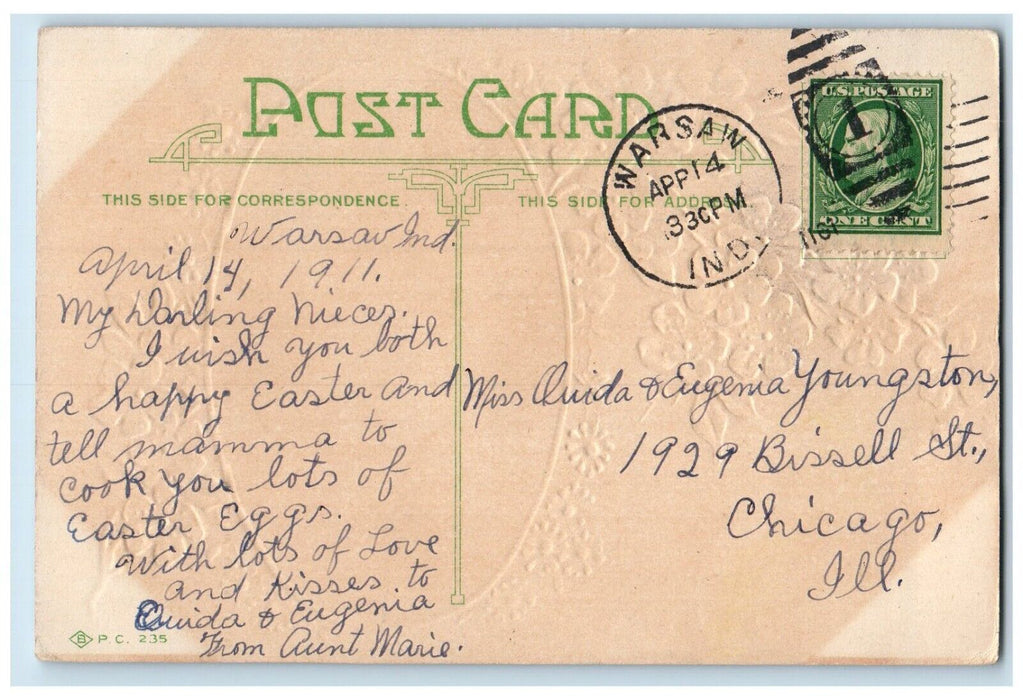 POST CARD
THIS SIDE FOR CORRESPONDENCE
THIS SIDE FOR ADDRESS
WARSAW
APR 14
830PM
IND.
U.S. POSTAGE
1
ONE CENT
Warsaw Ind.
April 14, 1911.
My Darling Nieces.
I wish you both
a happy Easter and
tell mamma to
cook you lots of
Easter Eggs.
With lots of Love
and Kisses to
Ouida & Eugenia
From Aunt Marie.
Miss Ouida & Eugenia Youngston,
1929 Bissell St.,
Chicago,
Ill.
B P.C. 235